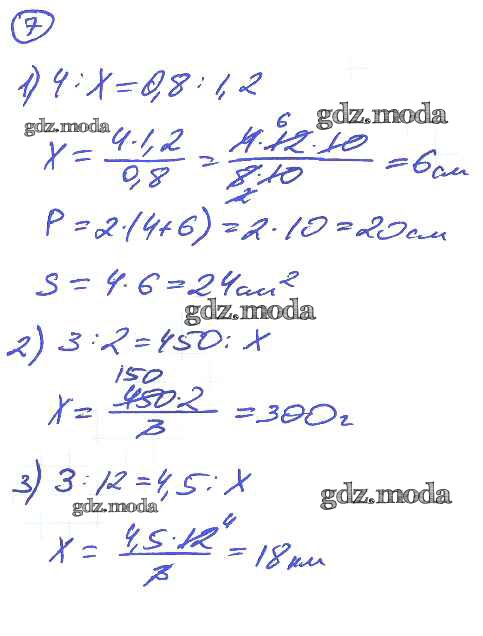 7
1) 4 : x = 0,8 : 1,2
gdz.moda
gdz.moda
x = 4·1,2 / 0,8 = 4·12·10 / 8·10 = 6 см
6
2
P = 2·(4+6) = 2·10 = 20 см
S = 4·6 = 24 см²
gdz.moda
2) 3 : 2 = 450 : x
150
x = 450·2 / 3 = 300 г
3) 3 : 12 = 4,5 : x
gdz.moda
gdz.moda
x = 4,5·12 / 3 = 18 км
4